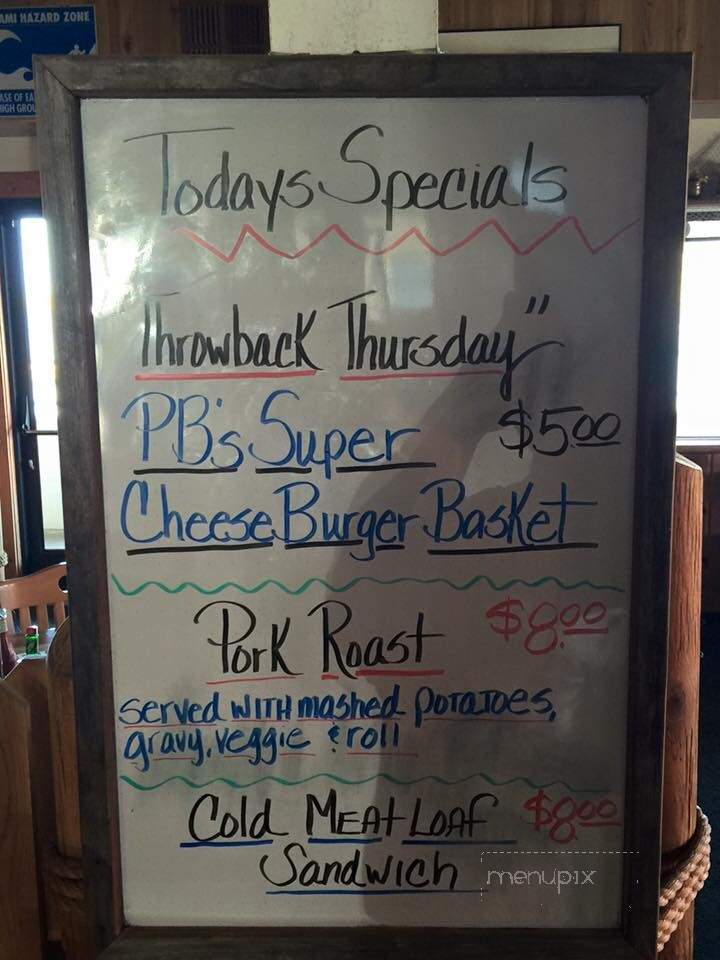 AMI HAZARD ZONE
Todays Specials
Throwback Thursday"
PB's Super $5.00
Cheese Burger Basket
Pork Roast $8.00
served WITH mashed POTATOES,
gravy, veggie & roll
Cold MEAt LOAF $8.00
Sandwich
menupix